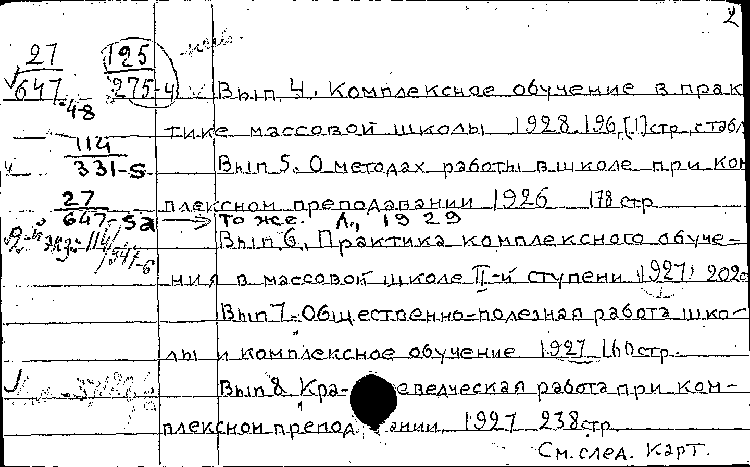 2
27
647-4-8
125
275-4
Вып. 4. Комплексное обучение в прак
тике массовой школы 1928. 196, [1] стр., с табл
114
331-5
Вып 5. О методах работы в школе при ком
плексном преподавании 1926 178 стр.
27
647-5а
То же. Л., 1929
Вып. 6. Практика комплексного обуче-
ния в массовой школе II-й ступени 1927 202с
Вып 7. Общественно-полезная работа шко-
лы и комплексное обучение 1927 160 стр.
Вып 8. Кра- еведческая работа при ком-
плексном препод ании 1927 238 стр.
См. след. карт.